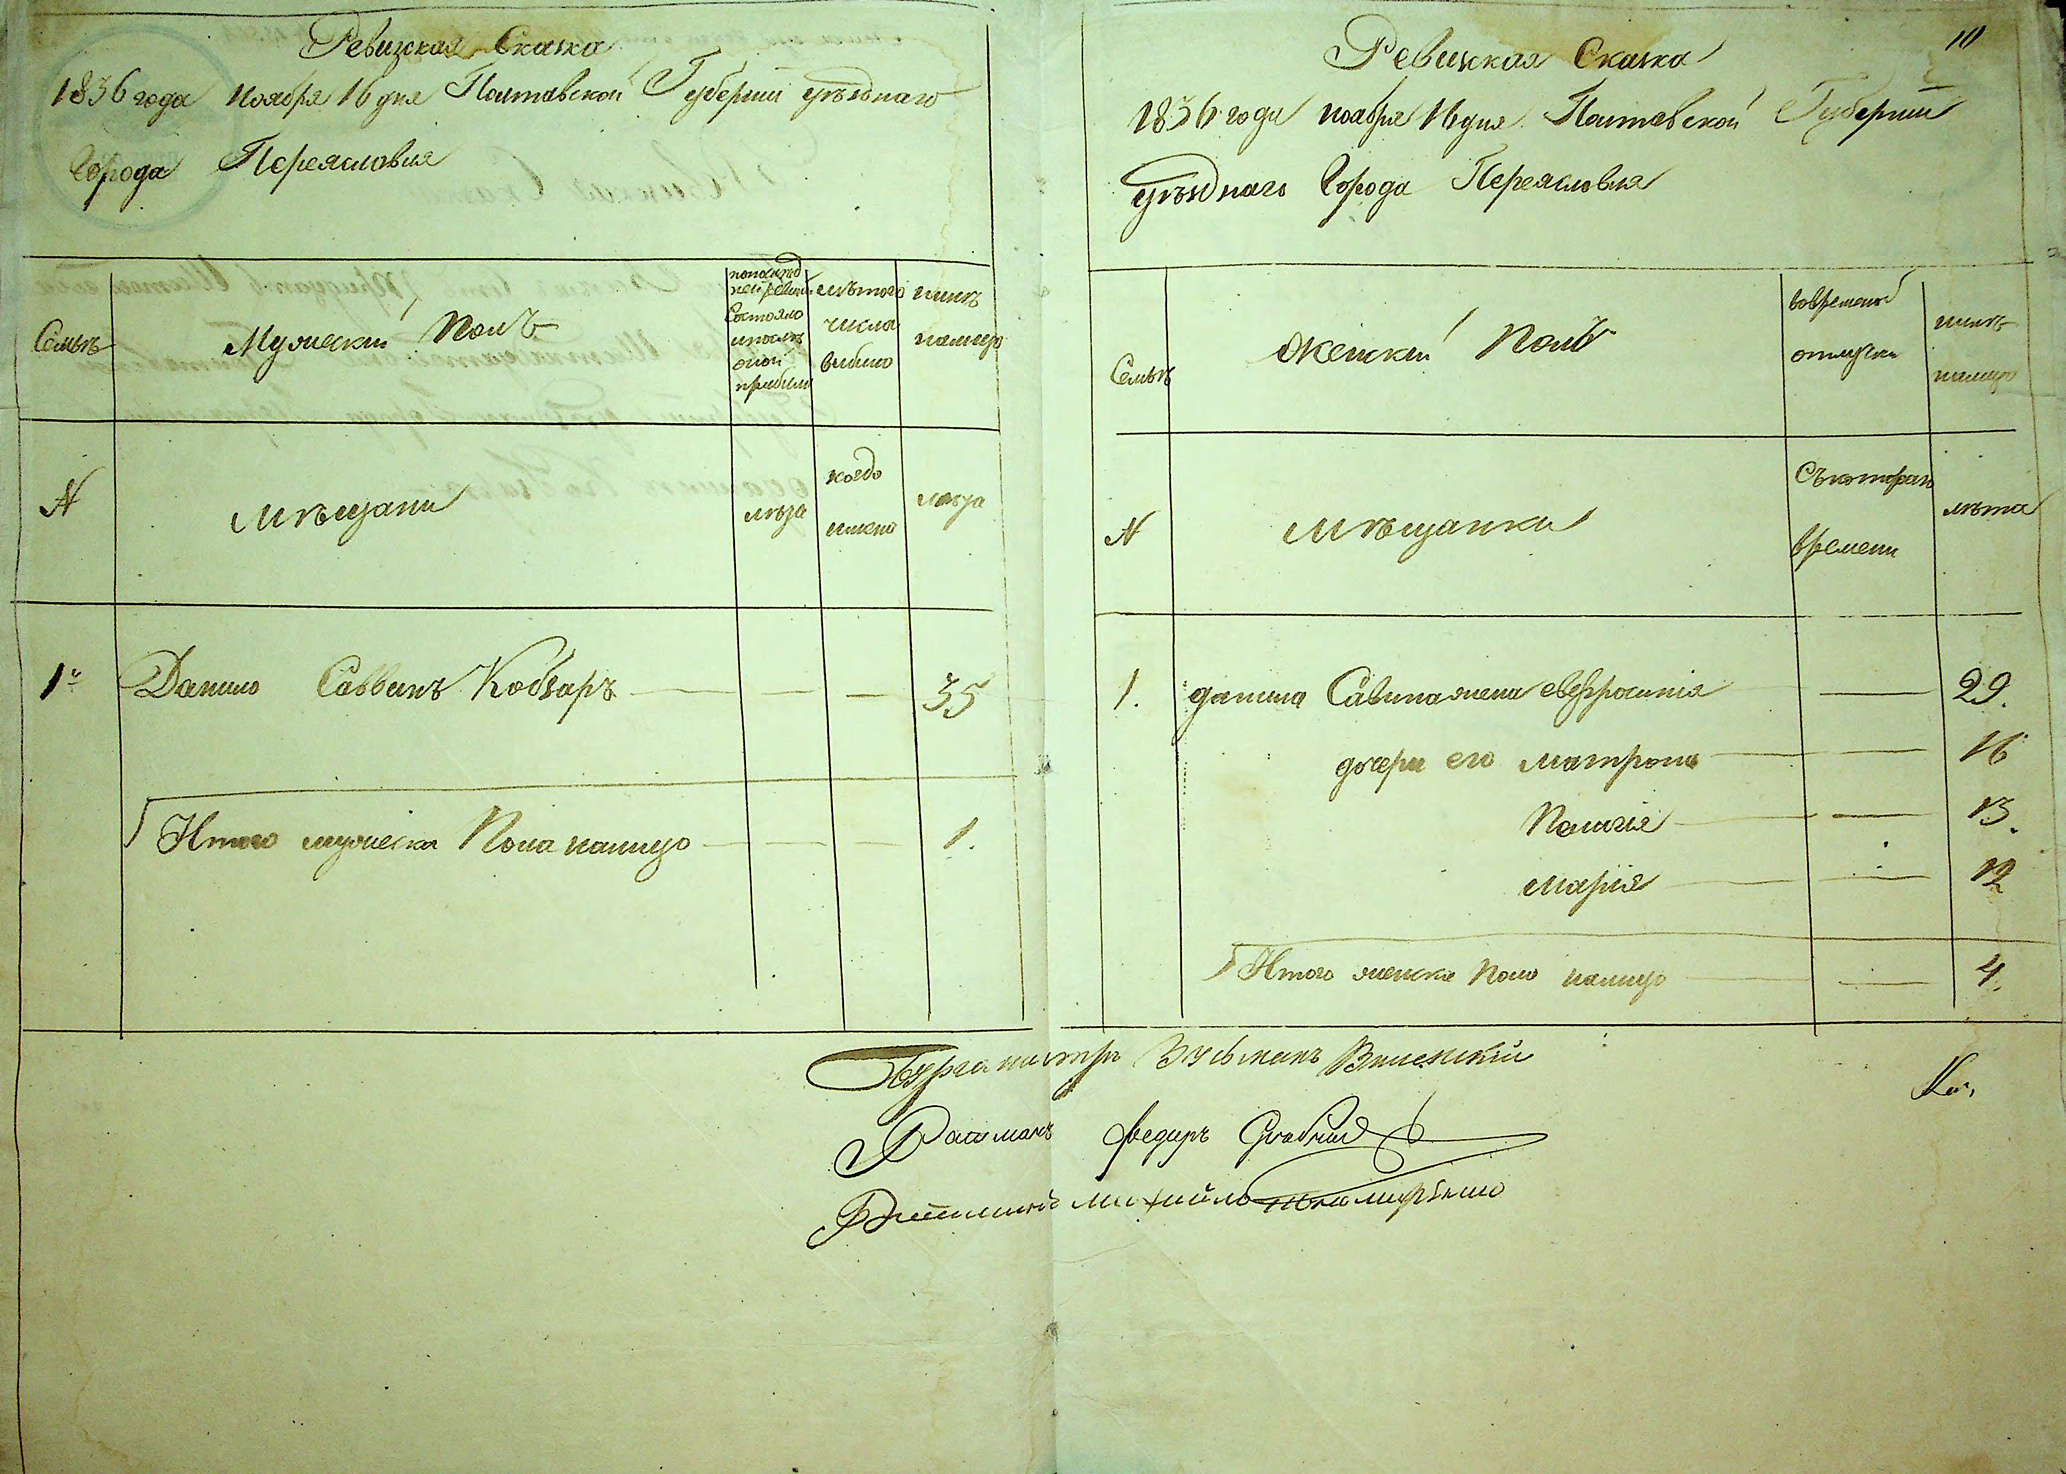 Ревизкая Сказка
1836 года ноября 16 дня Полтавской Губернии уѣзднаго
Города Переяславля
Семьи
Мужеский Полъ
по послѣд
ней ревизии
Состояло
и послѣ
оной
прибыло
изъ того
числа
выбыло
нынѣ
налицо
№
мѣщани
лѣта
когдо
имено
лѣта
1й Данило Саввинъ Кобзарь 35
Итого мужеска Пола налицо 1.
10
Ревизкая Сказка
1836 года ноября 16 дня Полтавской Губернии
уѣзднаго Города Переяславля
Семьи
Женский Полъ
вовременой
отлучки
нынѣ
налицо
№
мѣщанки
Съкоторан
времени
лѣта
1. данила Савина жена евфросинія 29.
дочери его матрона 16
Палагія 13.
марія 12
Итого женска Пола налицо 4.
Бургамистръ
Ратманъ федиръ